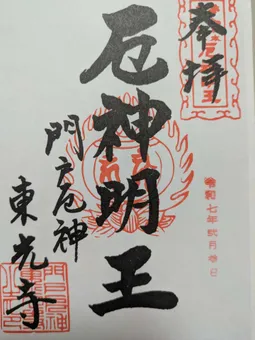 奉拝
令和七年弐月参日
厄神明王
門戸厄神
東光寺